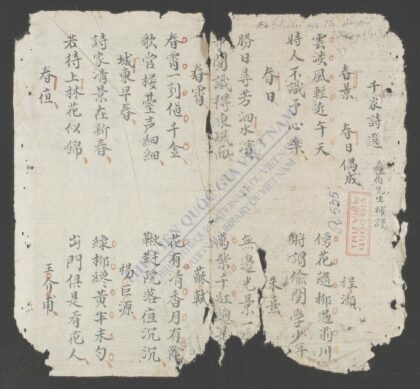 千家詩選
春景 春日偶成 程灝
雲淡風輕近午天 傍花隨柳過前川
時人不識予心樂 將謂偷閑學少年
春日 朱熹
勝日尋芳泗水濱 無邊光景一
閒識得東風面 萬紫千紅總
春宵 蘇軾
春宵一刻値千金 花有清香月有陰
歌管楼臺声細細 鞦韆院落夜沉沉
城東早春 楊巨源
詩家清景在新春 綠柳纔黃半未勻
若待上林花似錦 出門俱是看花人
春夜 王介甫
THƯ VIỆN QUỐC GIA VIỆT NAM
NATIONAL LIBRARY OF VIETNAM
THU VIEN
QUOC GIA